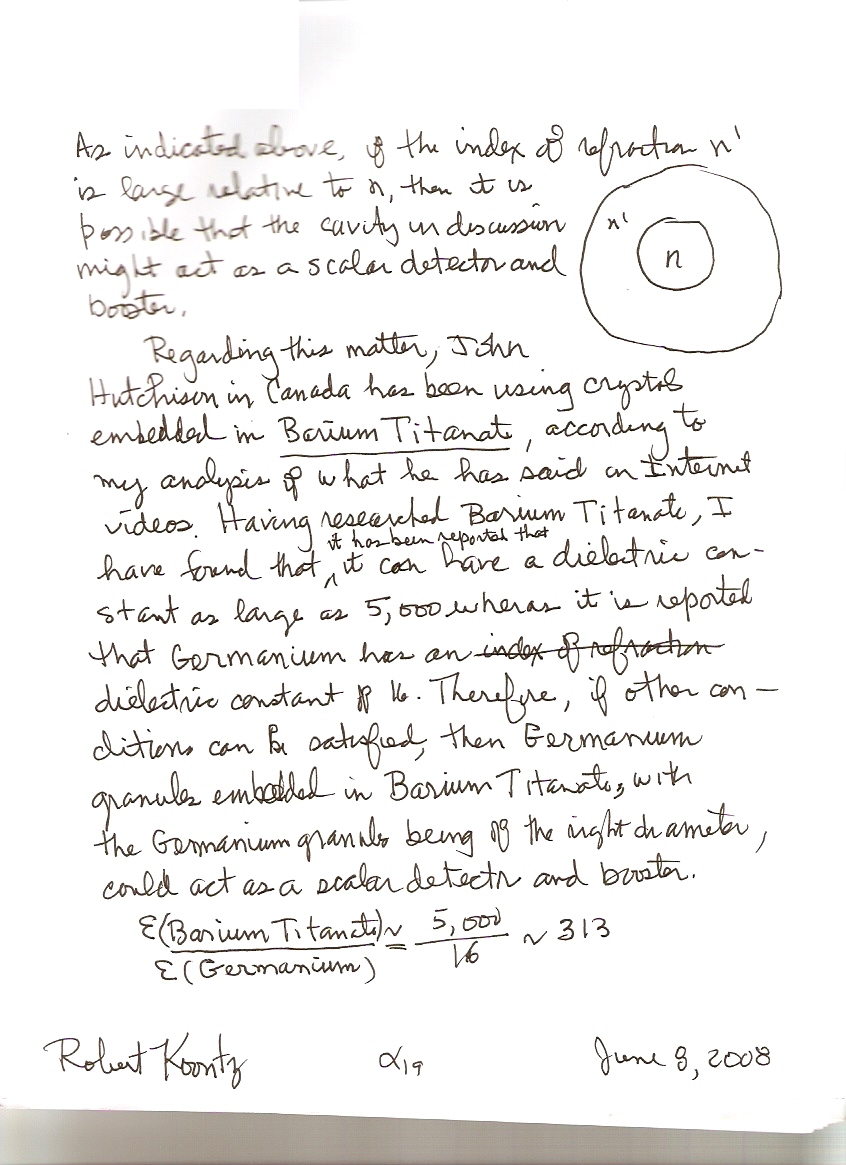 As indicated above, if the index of refraction n'
is large relative to n, then it is
possible that the cavity in discussion
might act as a scalar detector and
booster.
n'
n
Regarding this matter, John
Hutchison in Canada has been using crystals
embedded in Barium Titanate, according to
my analysis of what he has said on Internet
videos. Having researched Barium Titanate, I
it has been reported that
have found that ‸ it can have a dielectric con-
stant as large as 5,000 wheras it is reported
that Germanium has an index of refraction
dielectric constant of 16. Therefore, if other con-
ditions can be satisfied, then Germanium
granules embedded in Barium Titanate, with
the Germanium granules being of the right diameter,
could act as a scalar detector and booster.
ε(Barium Titanate) / ε(Germanium) ≃ 5,000 / 16 ~ 313
Robert Koontz α19 June 8, 2008